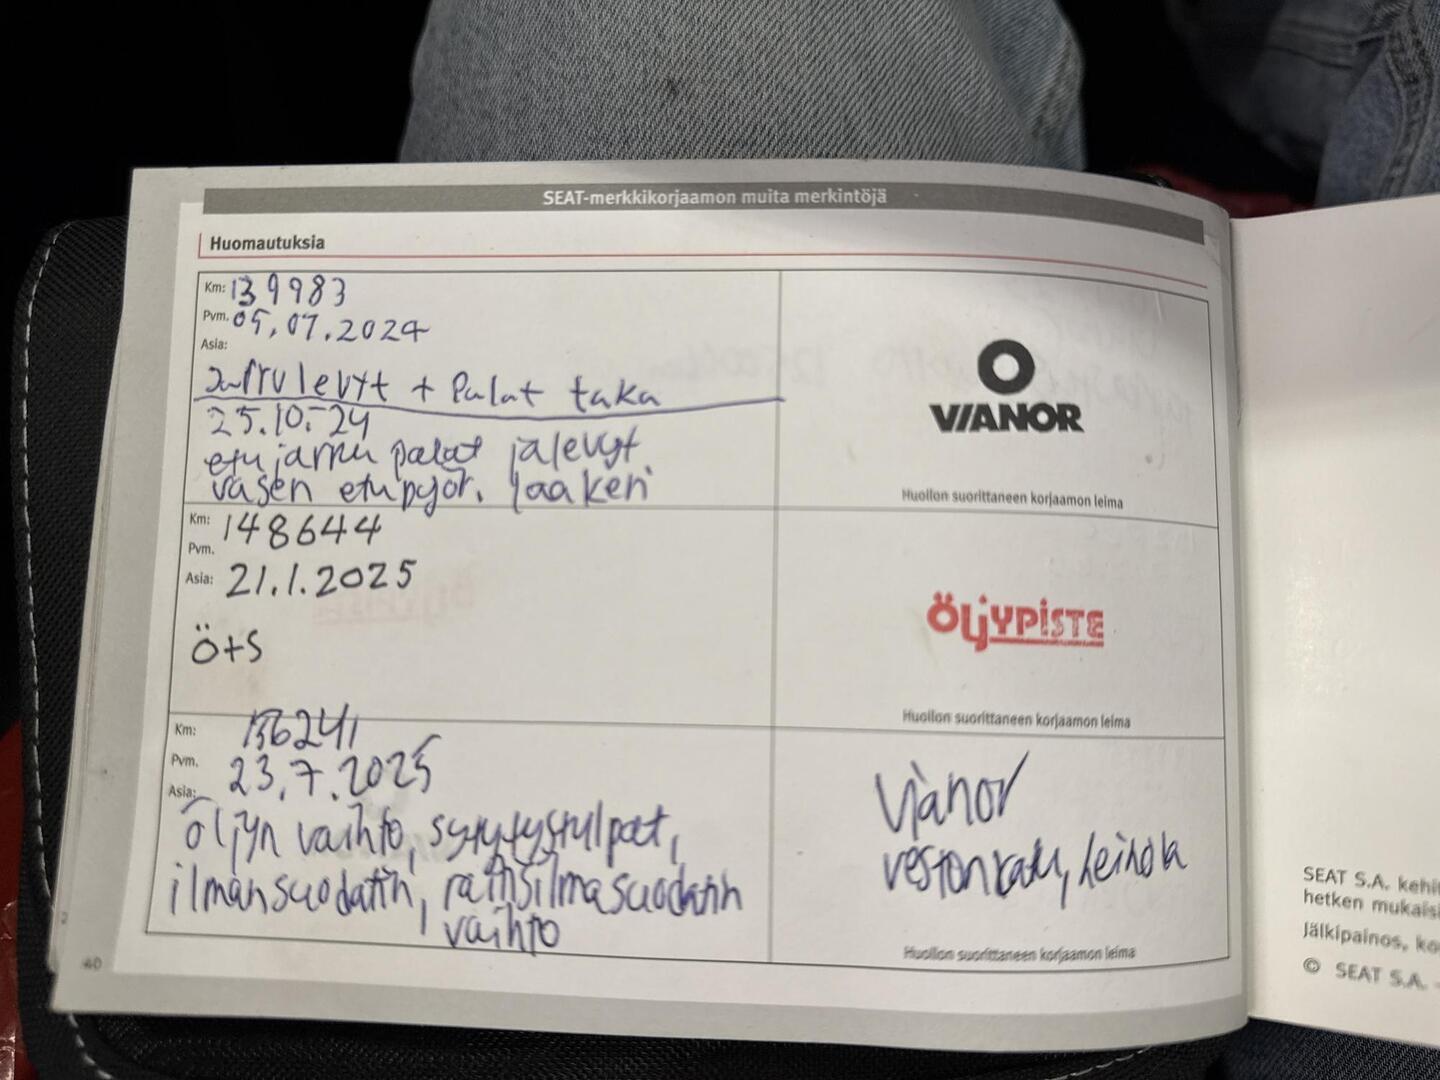 SEAT-merkkikorjaamon muita merkintöjä
Huomautuksia
Km: 139983
Pvm. 05.07.2024
Asia:
Jarrulevyt + Palat taka
25.10.-24
etujarru palat ja levyt
vasen etupyör. laakeri
VIANOR
Huollon suorittaneen korjaamon leima
Km: 148644
Pvm.
Asia: 21.1.2025
Ö+S
ÖLJYPISTE
Huollon suorittaneen korjaamon leima
Km: 156241
Pvm. 23.7.2025
Asia:
öljyn vaihto, sytytystulpat,
ilmansuodatin, raitisilmasuodatin
vaihto
Vianor
vestonkatu, heinola
Huollon suorittaneen korjaamon leima
40
2
SEAT S.A. kehit
hetken mukaisi
Jälkipainos, ko
© SEAT S.A. -